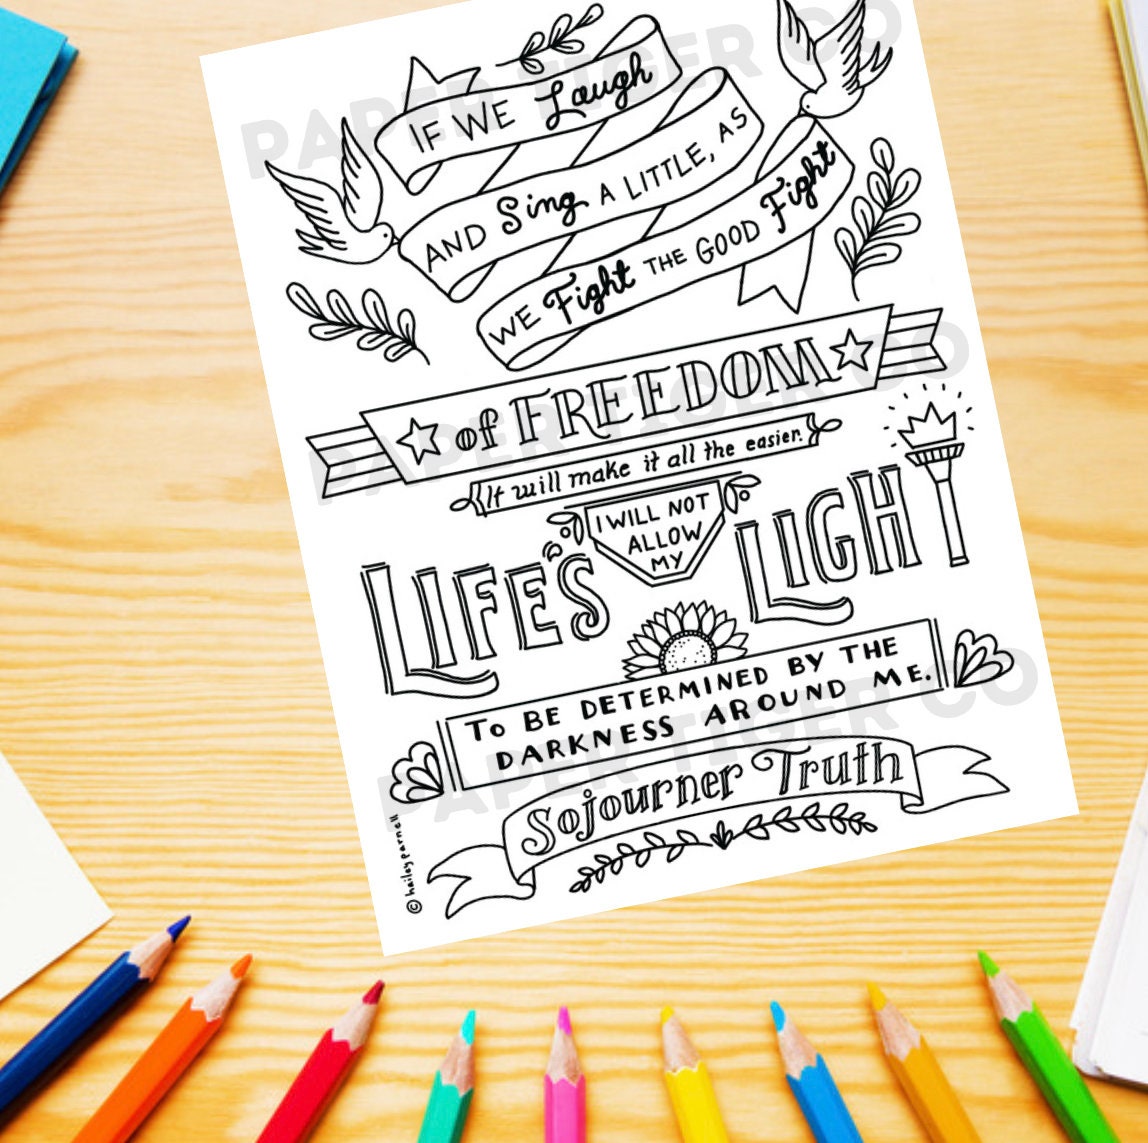 IF WE Laugh
AND Sing A LITTLE, AS
WE Fight THE GOOD Fight
of FREEDOM
It will make it all the easier.
I WILL NOT
ALLOW
MY
LIFE'S LIGHT
TO BE DETERMINED BY THE
DARKNESS AROUND ME.
Sojourner Truth
© hailey parnell
PAPER TIGER CO
PAPER TIGER CO
PAPER TIGER CO